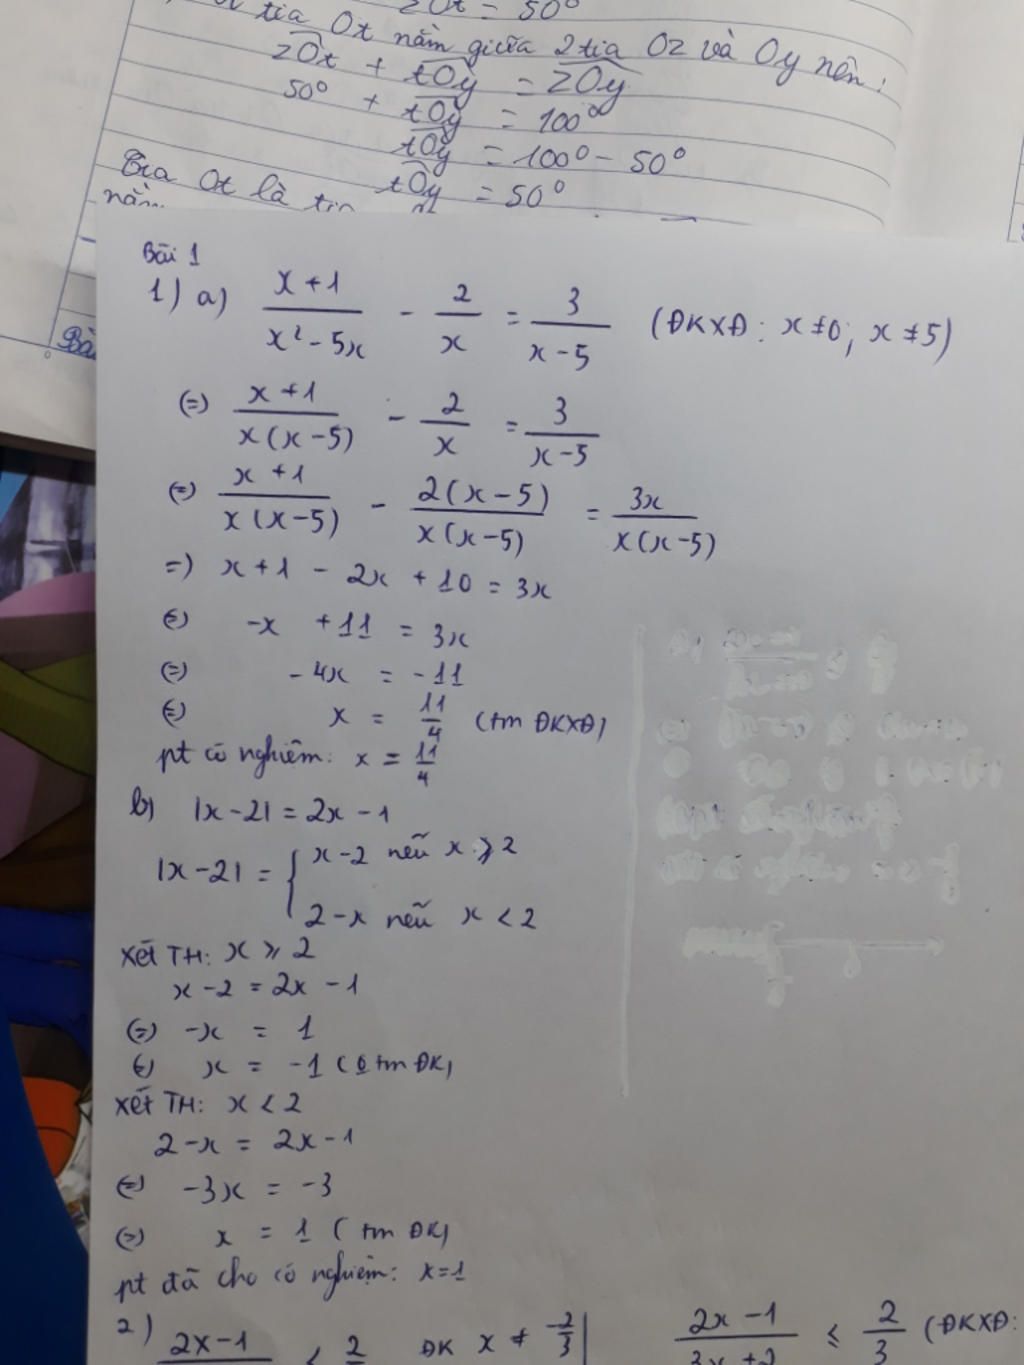 zOt = 50°
tia Ot nằm giữa 2 tia Oz và Oy nên:
zOt + tOy = zOy
50° + tOy = 100°
tOy = 100° - 50°
tOy = 50°
Tia Ot là tia
nằm
Bài 1
1) a) \frac{x+1}{x²-5x} - \frac{2}{x} = \frac{3}{x-5} (ĐKXĐ: x ≠ 0; x ≠ 5)
(=) \frac{x+1}{x(x-5)} - \frac{2}{x} = \frac{3}{x-5}
(=) \frac{x+1}{x(x-5)} - \frac{2(x-5)}{x(x-5)} = \frac{3x}{x(x-5)}
=) x+1 - 2x + 10 = 3x
(=) -x + 11 = 3x
(=) -4x = -11
(=) x = \frac{11}{4} (tm ĐKXĐ)
pt có nghiệm: x = \frac{11}{4}
b) |x-2| = 2x - 1
|x-2| = { x-2 nếu x ⩾ 2
2-x nếu x < 2
xét TH: x ⩾ 2
x-2 = 2x - 1
(=) -x = 1
(=) x = -1 (0 tm ĐK)
xét TH: x < 2
2-x = 2x-1
(=) -3x = -3
(=) x = 1 (tm ĐK)
pt đã cho có nghiệm: x=1
2) 2x-1 ĐK x ≠ \frac{-2}{3} | \frac{2x-1}{3x+2} ≤ \frac{2}{3} (ĐKXĐ: